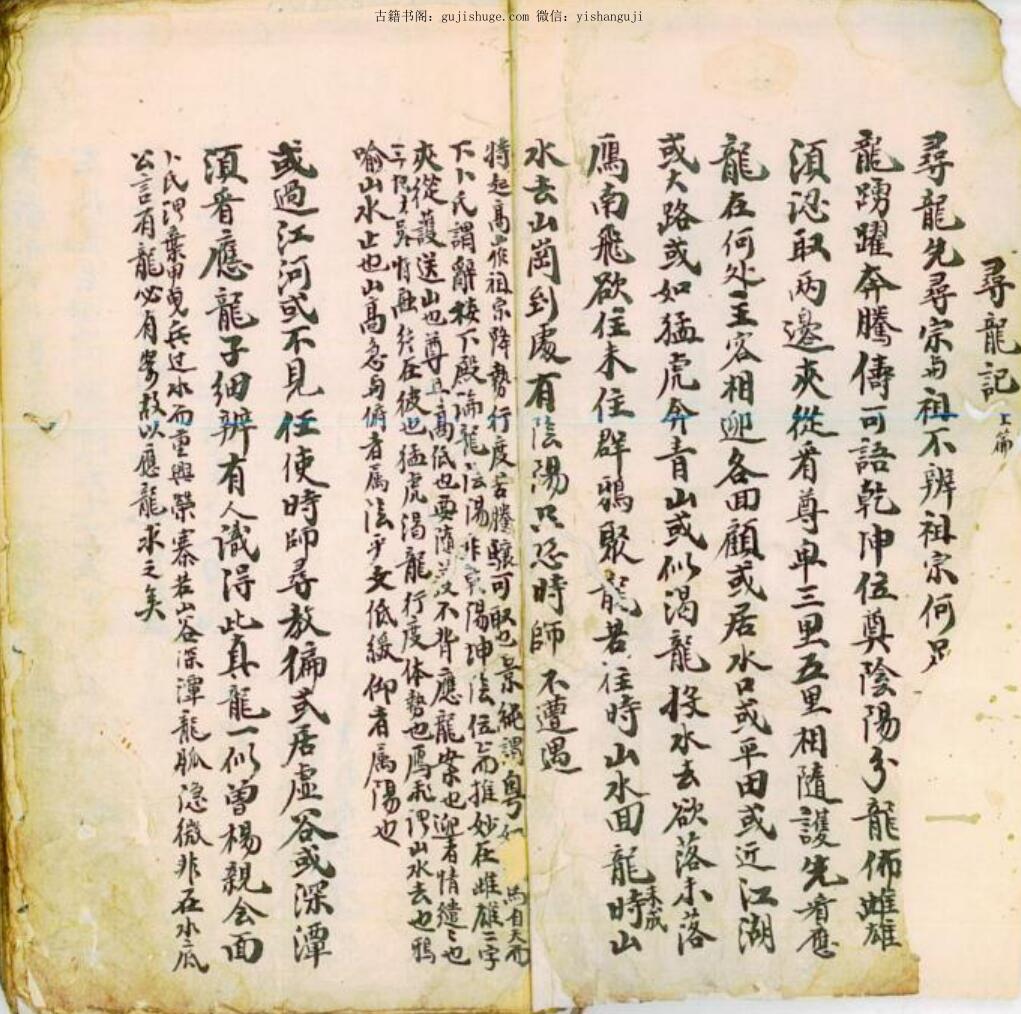 古籍书阁：gujishuge.com 微信：yishanguji
尋龍記 上篇
尋龍先尋宗与祖不辨祖宗何足
龍踴躍奔騰儔可語乾坤位奠陰陽分龍佈雌雄
須認取兩邊夾從看尊卑三里五里相隨護先看應
龍在何处主客相迎各回顧或居水口或平田或近江湖
或大路或如猛虎奔青山或似渴龍投水去欲落未落
鴈南飛欲住未住群鴉聚龍若住時山水回龍時山
未成
水去山崗到處有陰陽只恐時師不遭遇
特起高山作祖宗降勢行度若騰驤可取也景純謂粵如 馬自天而
下卜氏謂辭樓下殿 龍陰陽非乾陽坤陰位而推妙在雌雄二字
夾從護送山也尊且高低也 不背應龍案也迎者情繾〻也
情融 在彼也猛虎渴龍行度体勢也鴈飛謂山水去也鴉
喻山水止也山高急与俯者属陰乎支低緩仰者属陽也
或過江河或不見任使時師尋教偏或居虛谷或深潭
須看應龍子細辨有人識得此真龍一似曾楊親会面
卜氏謂棄甲曳兵过水而重興營寨若山谷深潭龍脈隐微非在水底
公言有龍必有案故以應龍求之矣